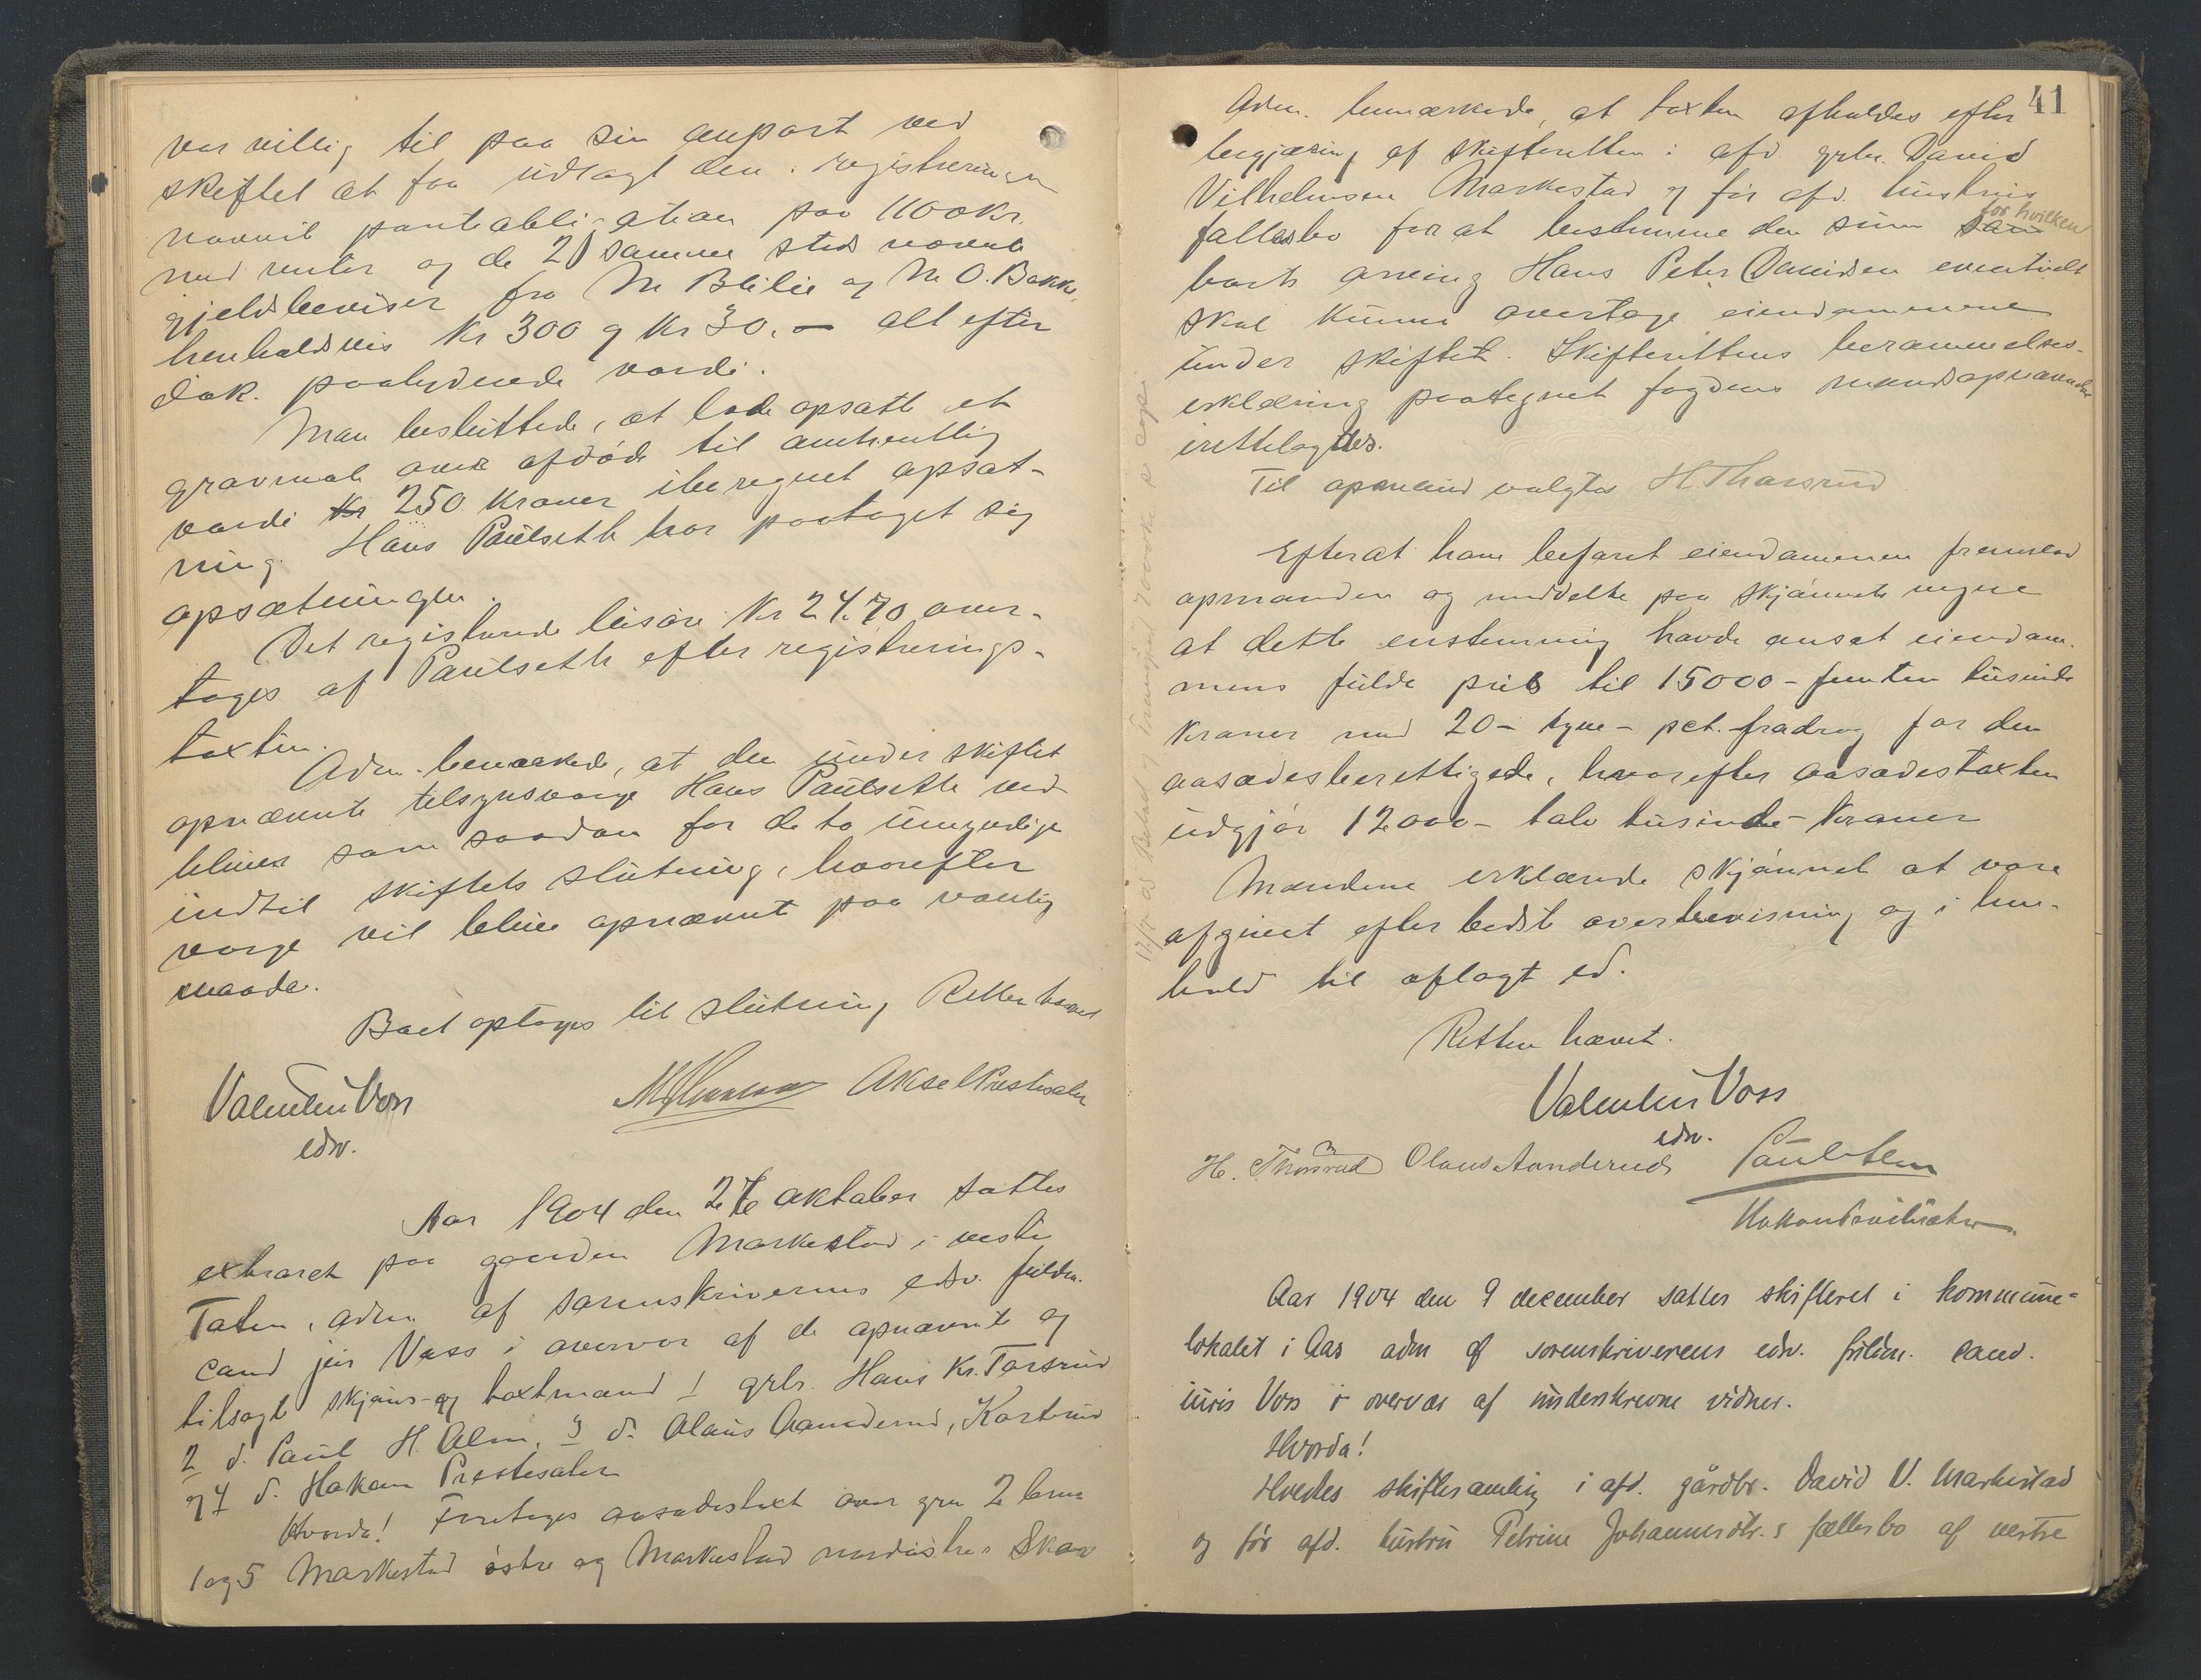 var villig til paa sin anpart ved
skiftet at faa udlagt den i registreringen
nævnte panteobligation paa 1100 kr.
med renter og de 2 samme sted nævnte
gjeldsbeviser fra M Blilie og M O. Bakke,
henholdsvis Kr 300 og Kr 30.- alt efter
dok. paalydende værdi.
Man besluttede, at lade opsætte et
gravmæle over afdøde til omtrentlig
værdi Kr 250 kroner iberegnet opsæt-
ning. Hans Paulseth har paataget sig
opsætningen.
Det registrerede løsøre Kr 24.70 over-
tages af Paulseth efter registrerings-
taxten.
Adm. bemærkede, at den under skiftet
opnævnte tilsynsværge Hans Paulseth ved-
bliver som saadan for de to umyndige
indtil skiftets slutning, hvorefter
værge vil blive opnævnt paa vanlig
maade.
Boet optages til slutning Retten hævet
Valentin Voss Aksel Prestesæter
edsv.
Aar 1904 den 27 oktober sattes
extraret paa gaarden Markestad i vestre
Toten, adm. af sorenskriverens edsv. fuldm.
cand jur Voss i overvær af de opnævnte og
tilsagte skjøns- og taxtmænd 1 grbr. Hans Kr. Torsrud
2 d. Paul H. Alm, 3 d. Olaus Aanderud, Kortrud
og 4 d. Hakon Prestesæter
Hvorda! Foretages aasædestaxt over grn 2 brn
1 og 5 Markestad østre og Markestad nordistre Skov
41
Adm. bemærkede, at taxten afholdes efter
begjæring af skifteretten i afd. grbr. David
Vilhelmsen Markestad og før afd. hustrus
fællesbo for at bestemme den sum som
for hvilken
boets arving Hans Peter Davidsen eventuelt
skal kunne overtage eiendommene
under skiftet. Skifterettens berammelses-
erklæring paategnet fogdens mandsopnævnelse
irettelagdes.
Til opmand valgtes H. Thorsrud
Efter at have befaret eiendommen fremstod
opmanden og meddelte paa skjønnets vegne
at dette enstemmig havde anset eiendom-
mens fulde pris til 15000 - femten tusinde
kroner med 20 - tyve - pct. fradrag for den
aasædesberettigede, hvorefter aasædestaxten
udgjør 12000 - tolv tusinde - kroner
Mændene erklærede skjønnet at være
afgivet efter bedste overbevisning og i hen-
hold til aflagt ed.
Retten hævet.
Valentin Voss
edsv.
H. Thorsrud Olaus Aanderud Paul Alm
Hakon Prestesæter
Aar 1904 den 9 december sattes skifteret i kommune=
lokalet i Aas adm af sorenskriverens edsv. fuldm. cand.
iuris Voss i overvær af underskrevne vidner.
Hvorda!
Holdtes skiftesamling i afd. gårdbr. David V. Markestad
og før afd. hustru Petrine Johannesdtr.s fællesbo af vestre